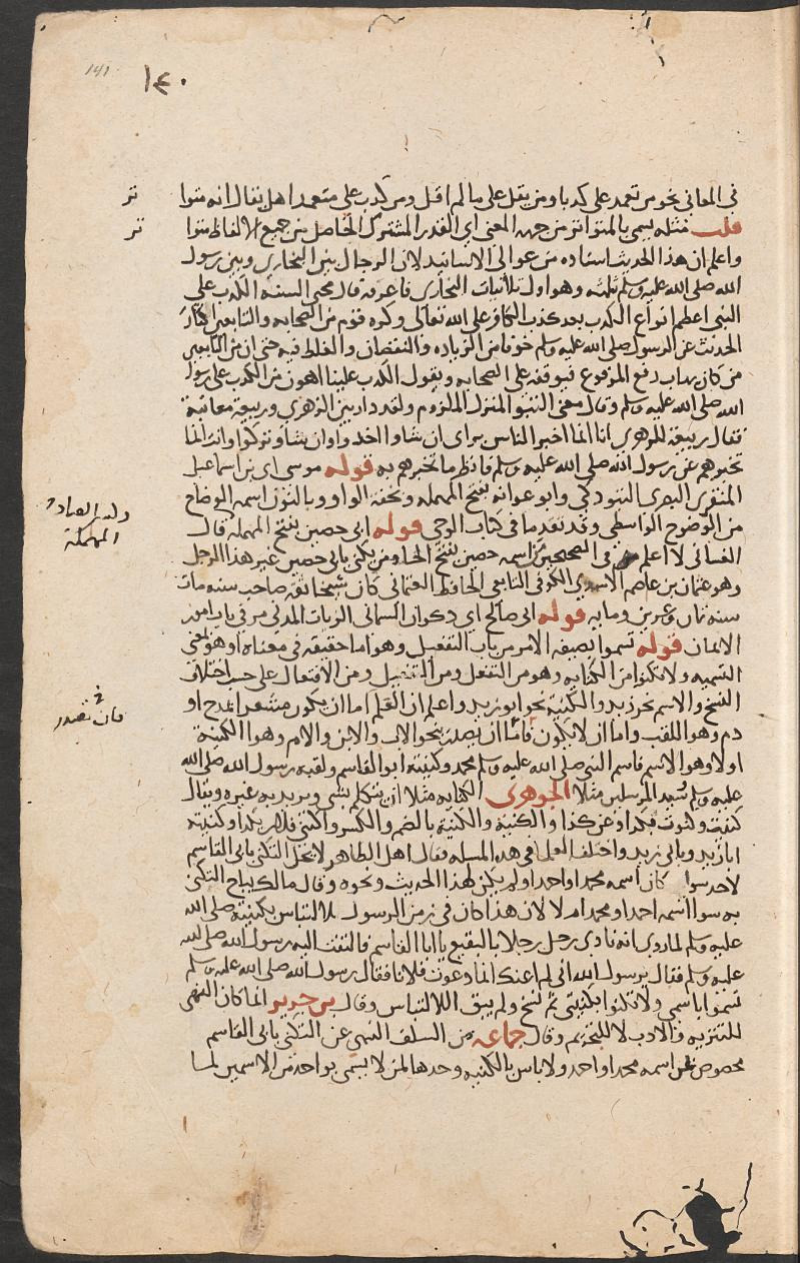 141
١٤٠
في المعاني نحو من تعمد على كذبا ومن يقل على ما لم اقل ومن كذب على متعمدا هل يقال انه متوا
تر
قلت مثله يسمى بالمتواتر من جهه المعنى اي القدر المشترك الحاصل من جميع الالفاظ متوا
تر
واعلم ان هذا الحديث اسناده من عوالي الاسانيد لان الرجال بين البخاري وبين رسول
الله صلى الله عليه وسلم ثلثه وهو اول ثلاثيات البخاري فاعرفه قال محيي السنه الكذب على
النبي اعظم انواع الكذب بعد كذب الكافر على الله تعالى وكره قوم من الصحابه والتابعين اكثار
الحديث عن الرسول صلى الله عليه وسلم خوفا من الزياده والنقصان والغلط فيه حتى ان من التابعين
من كان يهاب رفع المرفوع فيوقفه على الصحابه ويقول الكذب علينا اهون من الكذب على رسول
الله صلى الله عليه وسلم وقال معنى التبوء المنزل الملزوم ولقد دار بين الزهري وربيعة معاتبة
فقال ربيعة للزهري انا انما اخبر الناس براى ان شاوا اخذوا وان شاو تركوا وانت انما
تخبرهم عن رسول الله صلى الله عليه وسلم فانظر ما تخبرهم به قوله موسى اي بن اسماعيل
المنقري البصري التبوذكي وابو عوانه بفتح المهمله وبخفه الواو وبالنون اسمه الوضاح
من الوضوح الواسطي وقد تقدما في كتاب الوحي قوله ابي حصين بفتح المهمله قال
وكسر الصاد
المهملة
الغساني لا اعلم في الصحيحين من اسمه حصين بفتح الحا ومن يكنى بابي حصين غير هذا الرجل
وهو عثمان بن عاصم الاسدي الكوفي التابعي الحافظ العثماني كان شيخا ثقه صاحب سنه مات
سنه ثمان وعشرين ومايه قوله ابي صالح اي ذكوان السماني الزيات المدني مر في باب امور
الايمان قوله تسموا بصيغه الامر من باب التفعيل وهو اما حقيقه في معناه او هو بمعنى
التسميه ولا تكنوا من الكنايه وهو من التفعل ومن التفعيل ومن الافتعال على حسب اختلاف
النسخ والاسم نحو زيد والكنية نحو ابو زيد واعلم ان العلم اما ان يكون مشعرا بمدح او
ذم وهو اللقب واما ان لا يكون فاما ان يصدر بنحو الاب والابن والام وهو الكنية
خ
فان تصدر
اولا وهو الاسم فاسم النبي صلى الله عليه وسلم محمد وكنيته ابو القاسم ولقبه رسول الله صلى الله
عليه وسلم سيد المرسلين مثلا الجوهري الكنايه مثلا ان يتكلم بشى ويريد به غيره ويقال
كنيت وكنوت بكذا وعن كذا والكنية والكنية بالضم والكسر واكتنى فلان بكذا وكنيته
ابا زيد وبابي زيد واختلف العلما في هذه المسله فقال اهل الظاهر لا يحل التكني بابي القاسم
لاحد سوا كان اسمه محمدا او احمد او لم يكن لهذا الحديث ونحوه وقال مالك يباح التكني
به سوا اسمه احمد او محمد ام لا لان هذا كان في زمن الرسول للالتباس بكنيته صلى الله
عليه وسلم لما روي انه نادى رجل رجلا بالبقيع يا ابا القاسم فالتفت اليه رسول الله صلى الله
عليه وسلم فقال يرسول الله اني لم اعنك انما دعوت فلانا فقال رسول الله صلى الله عليه وسلم
تسموا باسمي ولا تكنوا بكنيتي ثم نسخ ولم يبق الالتباس وقال بن جرير انما كان النهي
للتنزيه والادب لا للتحريم وقال جماعه من السلف النهي عن التكني بابي القاسم
مخصوص بمن اسمه محمد او احمد ولا باس بالكنيه وحدها لمن لا يسمى بواحد من الاسمين لما